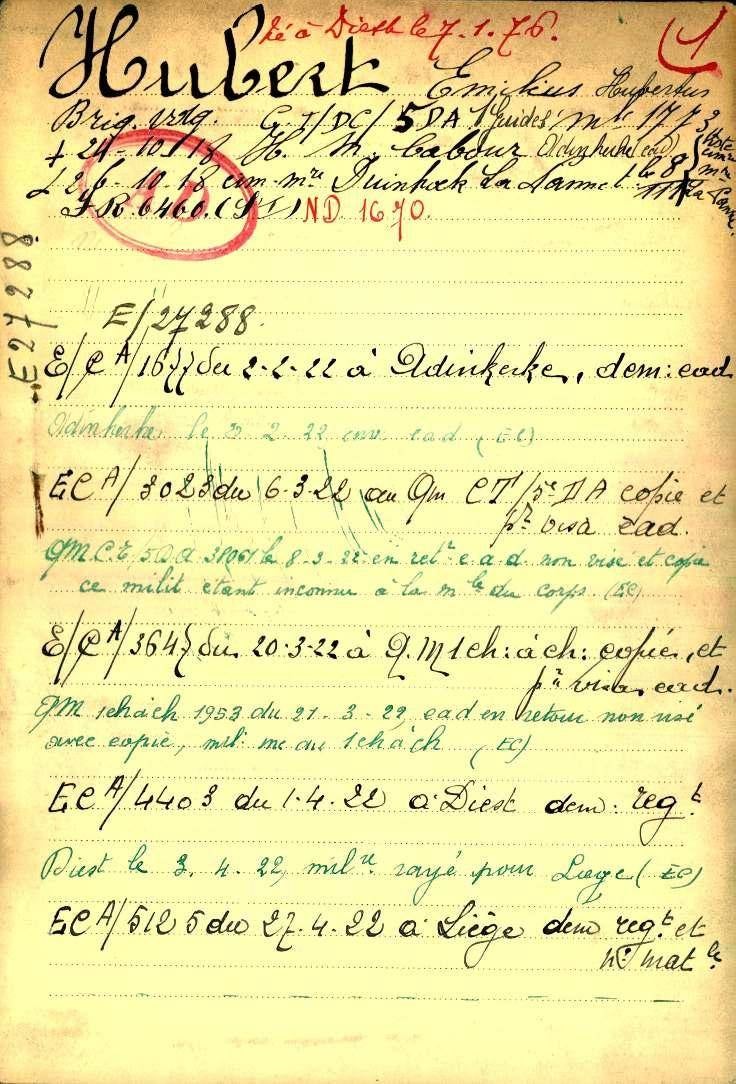 né à Diest le 7.1.76.
1
Hubert Emilius Hubertus
Brig. vdg. C.T/DC/5DA 1 Guides mle 1773
+ 24-10-18 H. M. Cabour Adinkerke (ead)
26-10-18 cim. mre Duinhoek La Panne
J.R.6460. ND 1670.
E27288
E/27288.
E/CA/167 du 2-2-22 à Adinkerke, dem: ead
Adinkerke le 3 2-22 env ead (EC)
ECA/3023 du 6-3-22 au Qm CT/5e DA copie et
pr visa ead.
QM C.T/5DA le 8-3-22 en retr e a d non visé et copie
ce milit étant inconnu à la mle du corps. (EC)
E/CA/3647 du 20-3-22 à Q.M 1 ch: à ch: copie, et
pr visa, ead.
QM 1chàch 1953 du 21-3-22, ead en retour non visé
avec copie, mil: inc au 1chàch (EC)
ECA/4403 du 1-4-22 à Diest dem: regt
Diest le 3.4.22, milre rayé pour Liège (EC)
ECA/5125 du 27.4.22 à Liège dem regt et
No matle